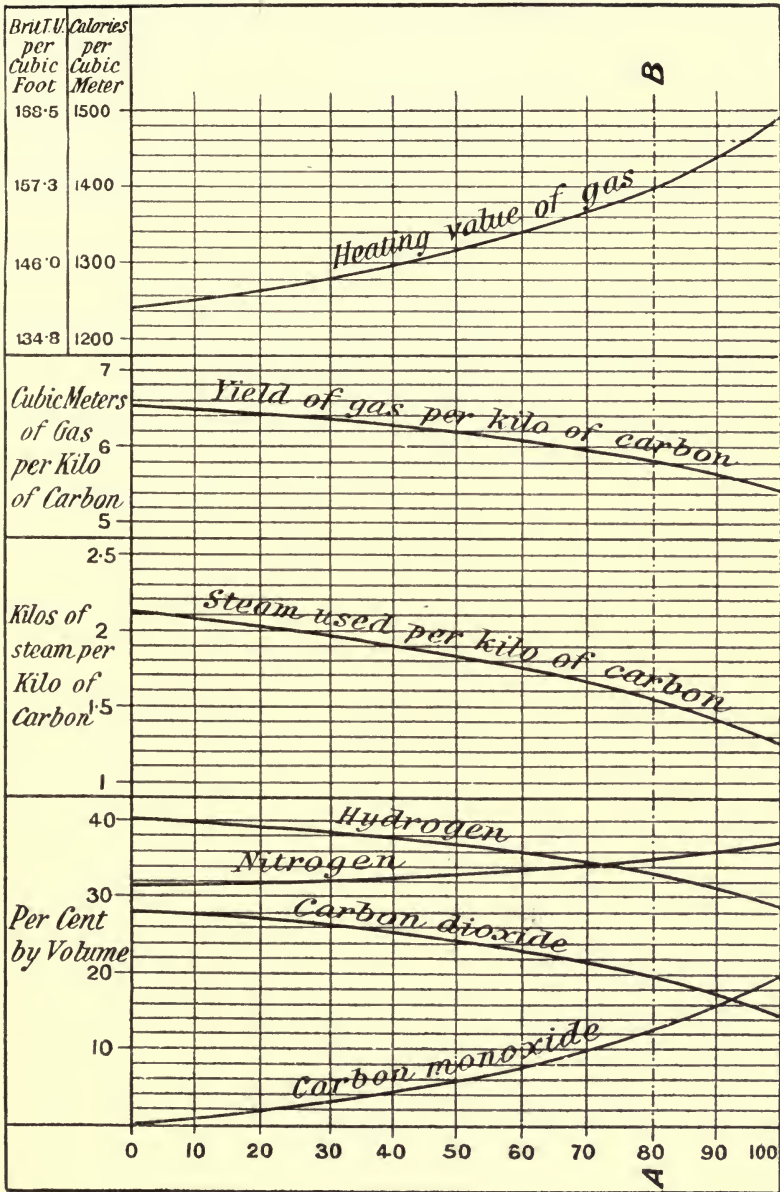 Brit.T.U.
per
Cubic
Foot
Calories
per
Cubic
Meter
B
168·5 1500
157·3 1400
146·0 1300
134·8 1200
Heating value of gas
7
Cubic Meters
of Gas
per Kilo
of Carbon
6
5
Yield of gas per kilo of carbon
2·5
Kilos of
steam per
Kilo of
Carbon
2
1·5
1
Steam used per kilo of carbon
40
30
Per Cent
by Volume
20
10
Hydrogen
Nitrogen
Carbon dioxide
Carbon monoxide
0 10 20 30 40 50 60 70 80 90 100
A